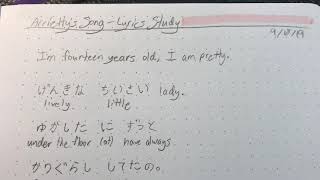 Arrietty's Song - Lyrics Study
I'm fourteen years old, I am pretty.
げんきな ちいさい lady.
lively little
ゆかした に ずっと
under the floor (at) have always
かりぐらし してたの。